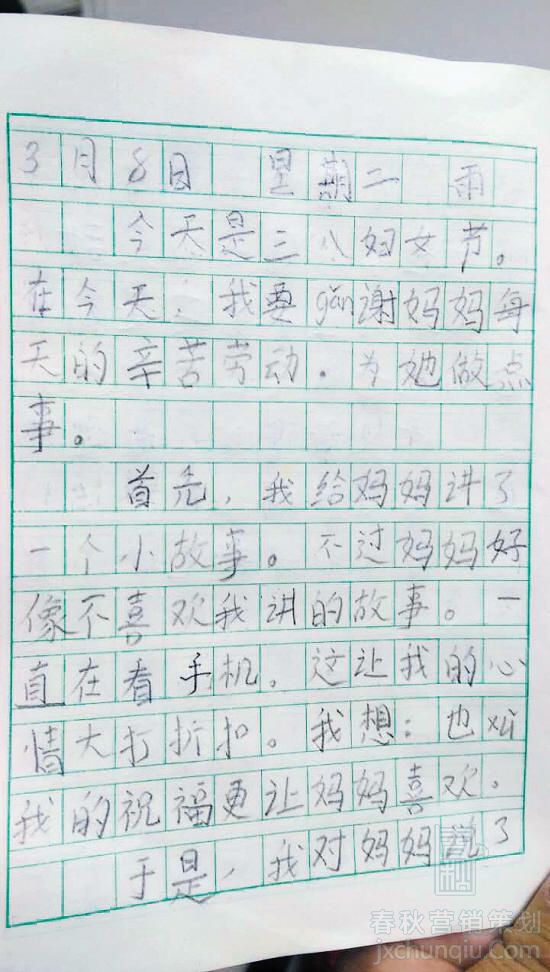 3月8日 星期二 雨
今天是三八妇女节。
在今天,我要gǎn谢妈妈每
天的辛苦劳动.为她做点
事。
首先,我给妈妈讲了
一个小故事。不过妈妈好
像不喜欢我讲的故事。一
直在看手机。这让我的心
情大打折扣。我想:也xǔ
我的祝福更让妈妈喜欢。
于是,我对妈妈说了
春秋营销策划
jxchunqiu.com